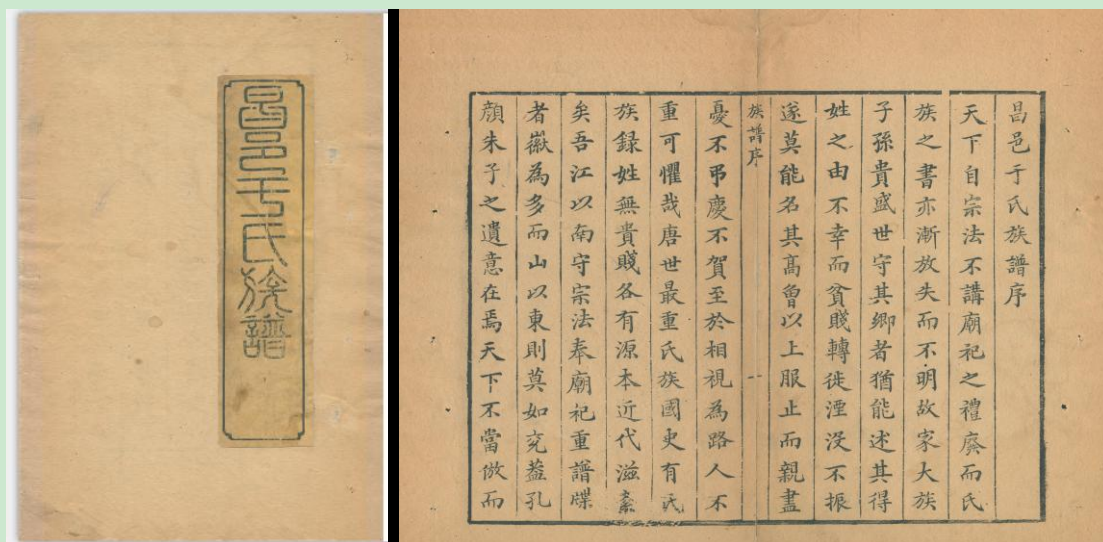 昌邑于氏族譜
昌邑于氏族譜序
天下自宗法不講廟祀之禮廢而氏
族之書亦漸放失而不明故家大族
子孫貴盛世守其鄉者猶能述其得
姓之由不幸而貧賤轉徙湮没不振
遂莫能名其高曾以上服止而親盡
族譜序
一
憂不弔慶不賀至於相視為路人不
重可懼哉唐世最重氏族國史有氏
族録姓無貴賤各有源本近代滋紊
矣吾江以南守宗法奉廟祀重譜牒
者徽為多而山以東則莫如兖葢孔
顔朱子之遺意在焉天下不當倣而